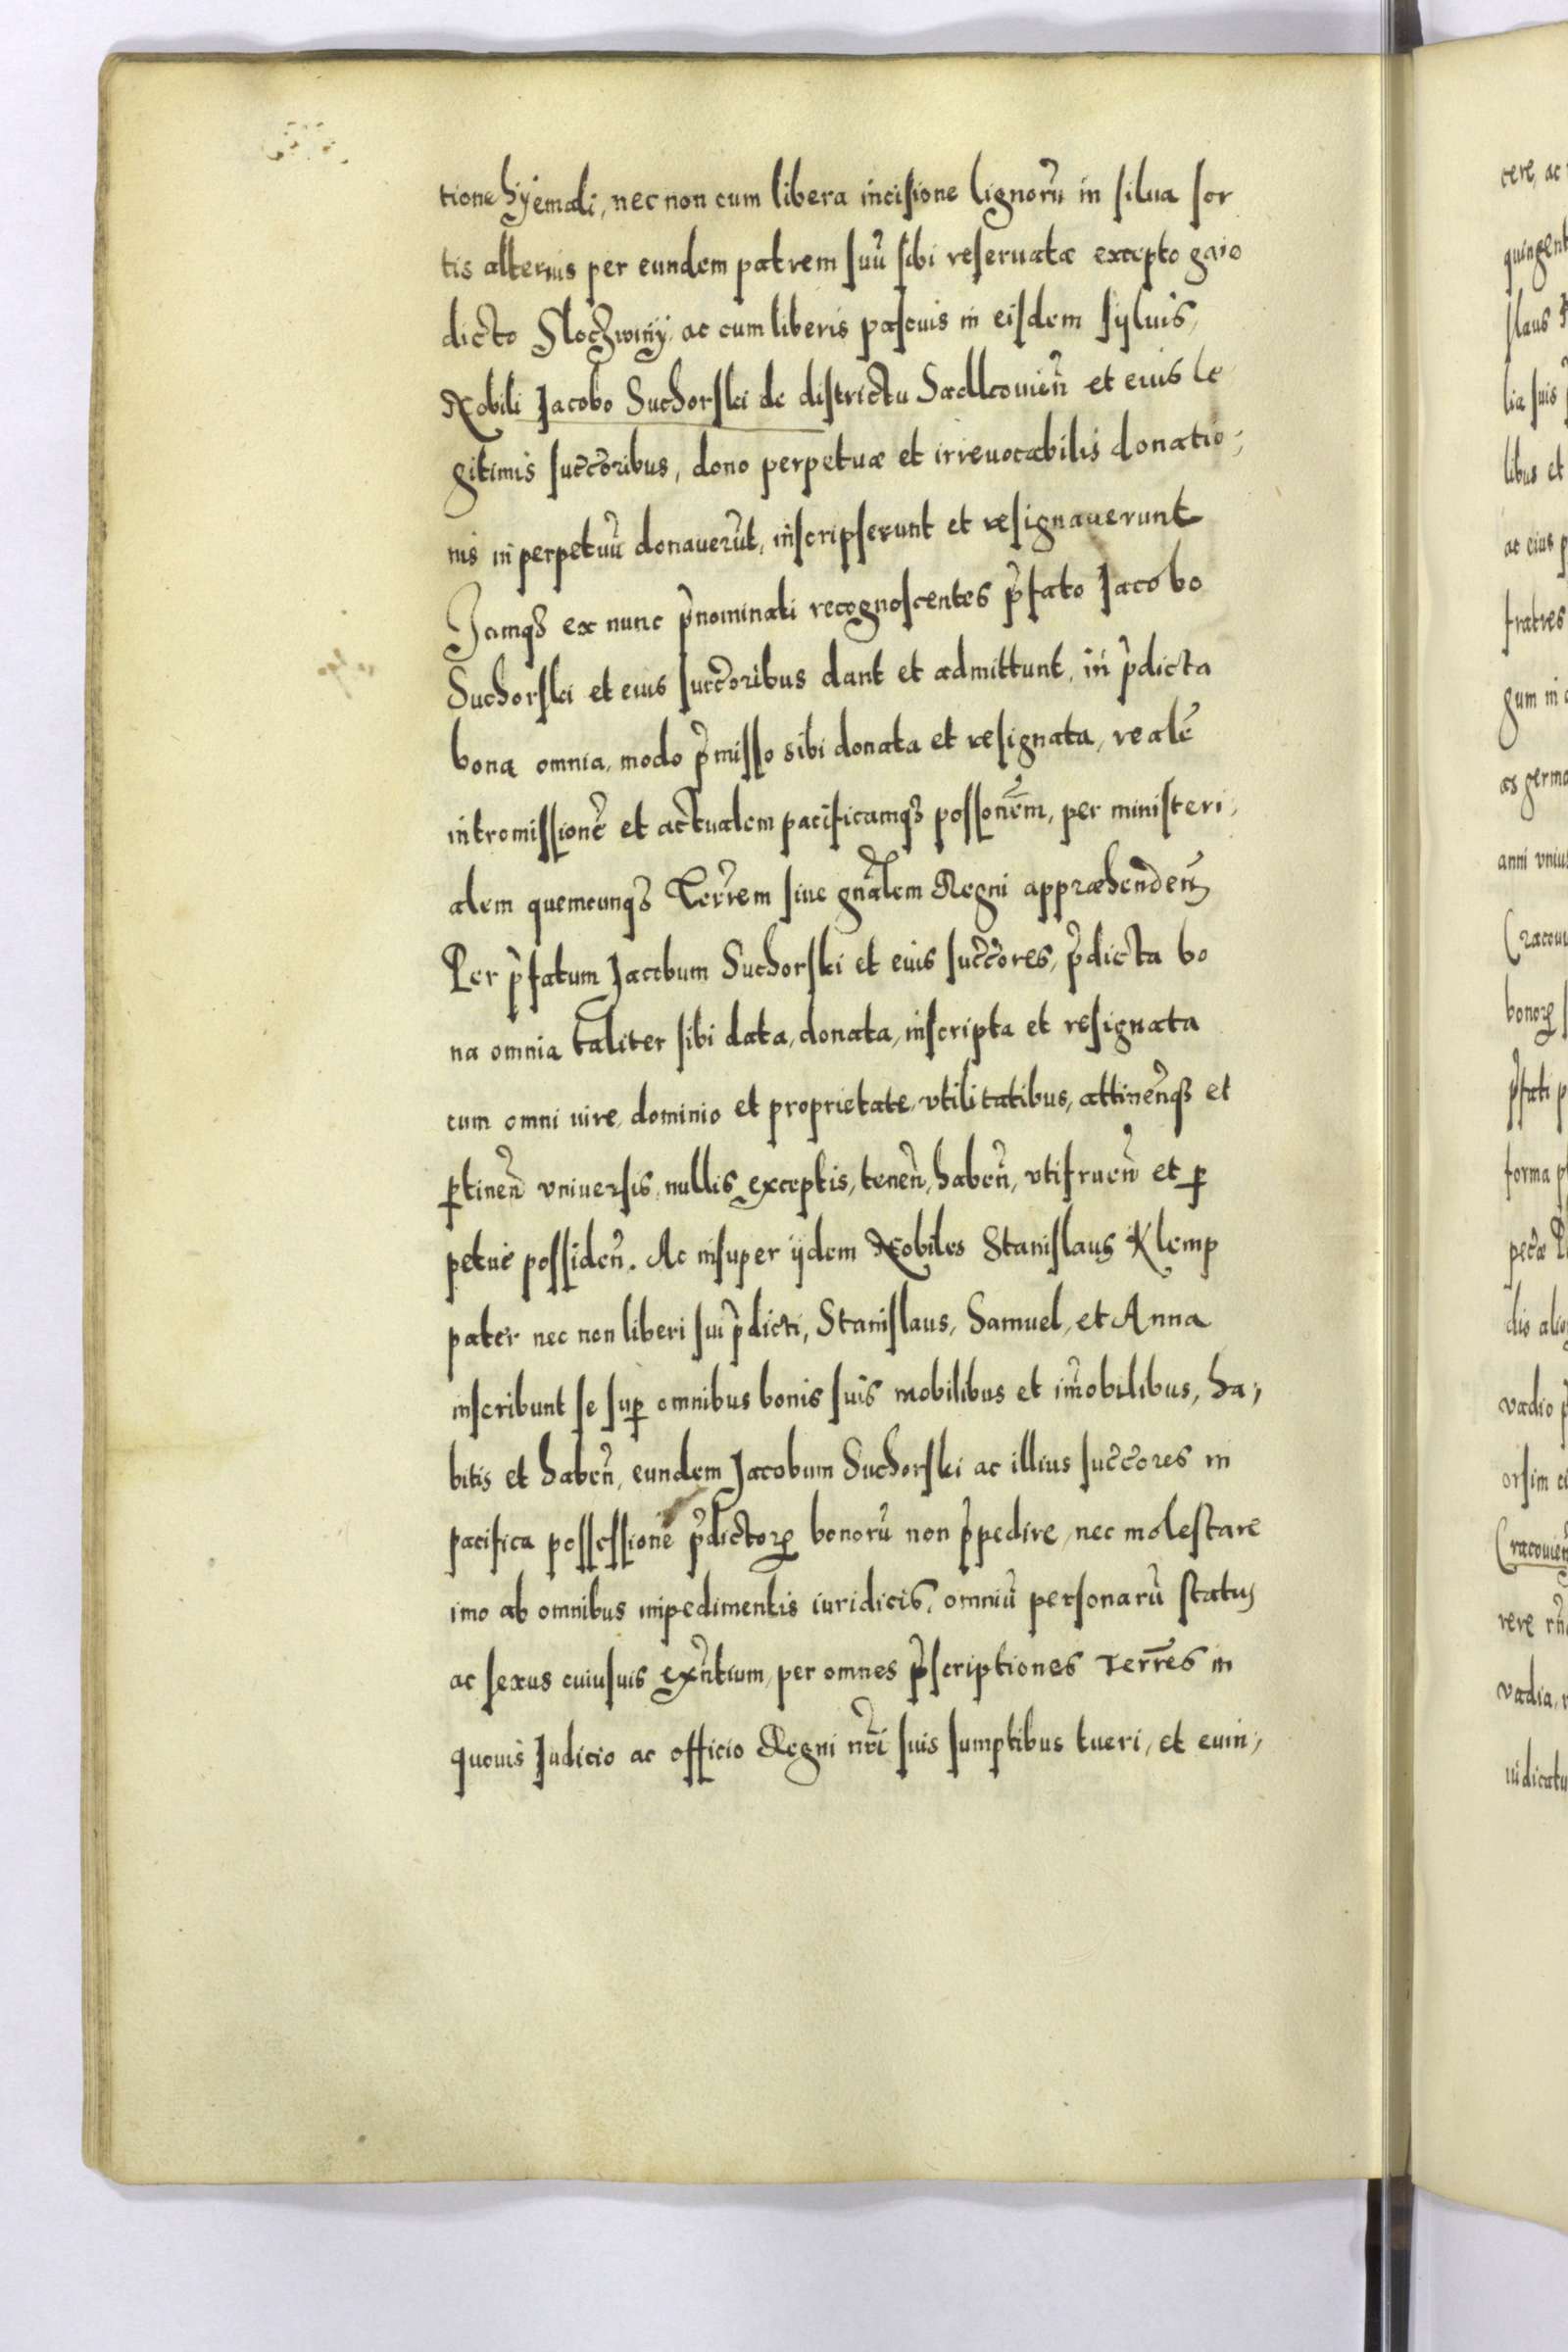 tione hÿemali, nec non cum libera incisione lignorũ in silua sor
tis alterius per eundem patrem suũ sibi reseruatæ excepto gaio
dicto Sloczwinÿ, ac cum liberis pascuis in eisdem sÿluis,
Nobili Jacobo Suchorski de districtu Sadkouieñ et eius le
gitimis succ̃oribus, dono perpetuæ et irreuocabilis donatio,
nis in perpetuũ donauerũt, inscripserunt et resignauerunt
Jamqȝ ex nunc p̃nominati recognoscentes p̃fato Jacobo
Suchorski et eius succ̃oribus dant et admittunt, in p̃dicta
bona omnia, modo p̃misso sibi donata et resignata, realẽ
intromissionẽ et actualem pacificamqȝ possoñem, per ministeri,
alem quemcunqȝ Terr̃em siue gñalem Regni appræhendeñ
Per p̃fatum Jacobum Suchorski et eius succ̃ores, p̃dicta bo
na omnia taliter sibi data, donata, inscripta et resignata
cum omni iure, dominio et proprietate, vtilitatibus, attineñqȝ et
ꝑtineñ vniuersis, nullis exceptis, teneñ, habeñ, vtifrueñ et ꝑ
petue possideñ. Ac insuper ijdem Nobiles Stanislaus Klemp
pater nec non liberi sui p̃dicti, Stanislaus, Samuel, et Anna
inscribunt se suꝑ omnibus bonis suis mobilibus et im̃obilibus, ha,
bitis et habeñ, eundem Jacobum Suchorski ac illius succ̃ores in
pacifica possessionẽ p̃dictoꝝ bonorũ non p̃pedire, nec molestare
imo ab omnibus impedimentis iuridicis, omniũ personarũ status
ac sexus cuiusuis exñtium, per omnes p̃scriptiones Terr̃es in
quouis Judicio ac officio Regni nr̃i suis sumptibus tueri, et euin,